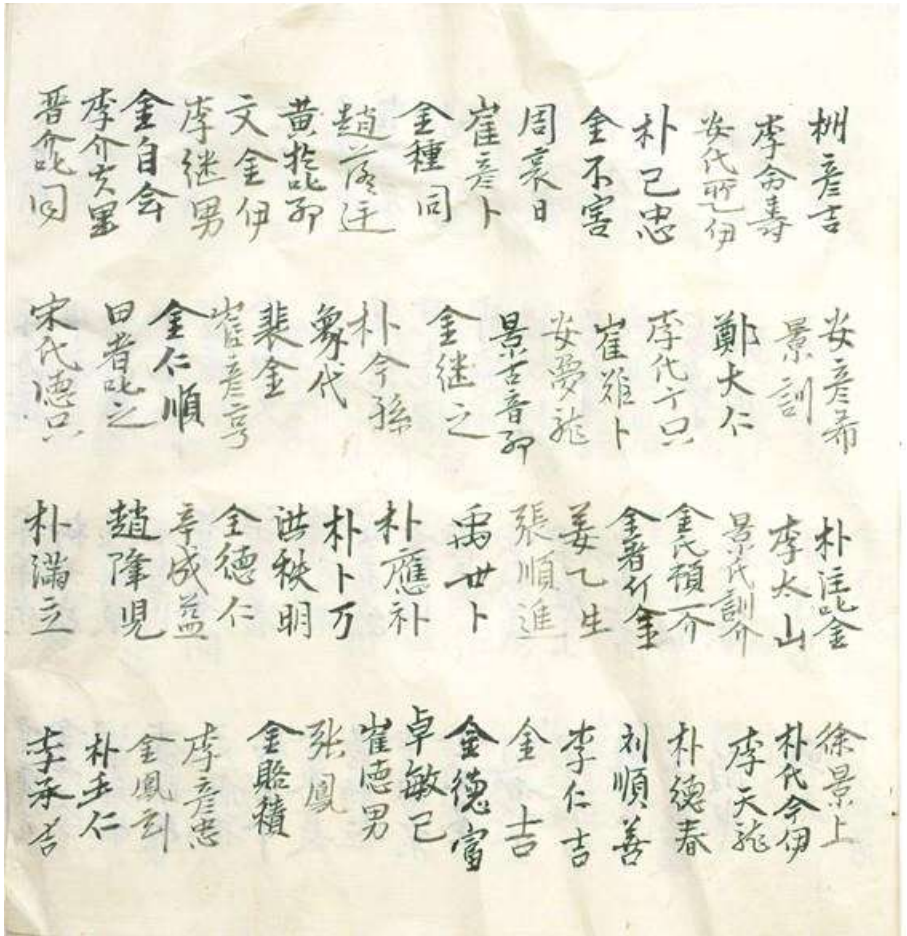 彦吉
李命壽
安代 伊
朴己忠
金不害
周哀日
崔彦卜
金種同
趙 迂
黄 卯
文金伊
李継男
金自会
李介 里
晋 同
安彦希
景訓
鄭大仁
李代 只
崔 卜
安夢龍
景古音卯
金継之
朴今孫
象代
裴金
崔彦亨
金仁順
田者叱之
宋代德只
朱 金
李太山
景代訓介
金 頓介
金者斤金
姜乙生
張順進
禹世卜
朴應补
朴卜万
洪秩明
全德仁
辛成益
趙隆児
朴滿立
徐景上
朴代今伊
李天龍
朴德春
刘順善
李仁吉
金吉
金德富
卓敏己
崔德男
张鳳
金賂積
李彦忠
金鳳
朴 仁
李承吉